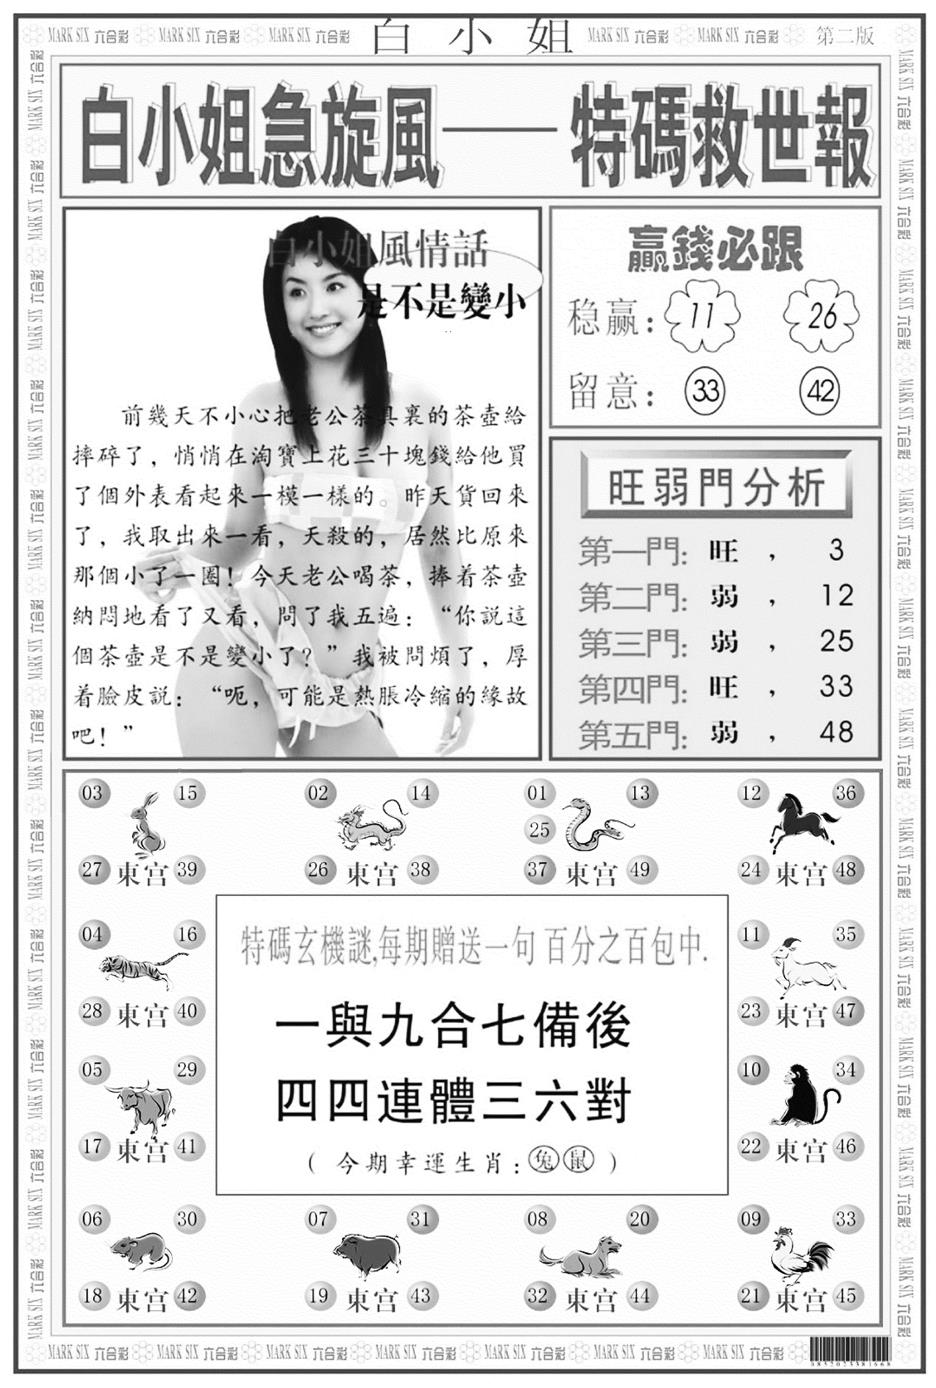 MARK SIX 六合彩 MARK SIX 六合彩 MARK SIX 六合彩 白小姐 MARK SIX 六合彩 MARK SIX 六合彩 第二版
白小姐急旋風——特碼救世報
白小姐風情話
是不是變小
..
前幾天不小心把老公茶具裏的茶壺給
摔碎了，悄悄在淘寶上花三十塊錢給他買
了個外表看起來一模一樣的。昨天貨回來
了，我取出來一看，天殺的，居然比原來
那個小了一圈！今天老公喝茶，捧着茶壺
納悶地看了又看，問了我五遍：“你說這
個茶壺是不是變小了？”我被問煩了，厚
着臉皮説：“呃，可能是熱脹冷縮的緣故
吧！”
贏錢必跟
稳赢： 11 26
留意： 33 42
旺弱門分析
第一門: 旺 ， 3
第二門: 弱 ， 12
第三門: 弱 ， 25
第四門: 旺 ， 33
第五門: 弱 ， 48
03 15
27 東宫 39
02 14
26 東宫 38
01 13
25
37 東宫 49
12 36
24 東宫 48
04 16
28 東宫 40
11 35
23 東宫 47
05 29
17 東宫 41
10 34
22 東宫 46
特碼玄機謎,每期贈送一句 百分之百包中.
一與九合七備後
四四連體三六對
（今期幸運生肖：兔 鼠）
06 30
18 東宫 42
07 31
19 東宫 43
08 20
32 東宫 44
09 33
21 東宫 45
MARK SIX 六合彩 MARK SIX 六合彩 MARK SIX 六合彩 MARK SIX 六合彩 MARK SIX 六合彩 MARK SIX 六合彩 MARK SIX 六合彩